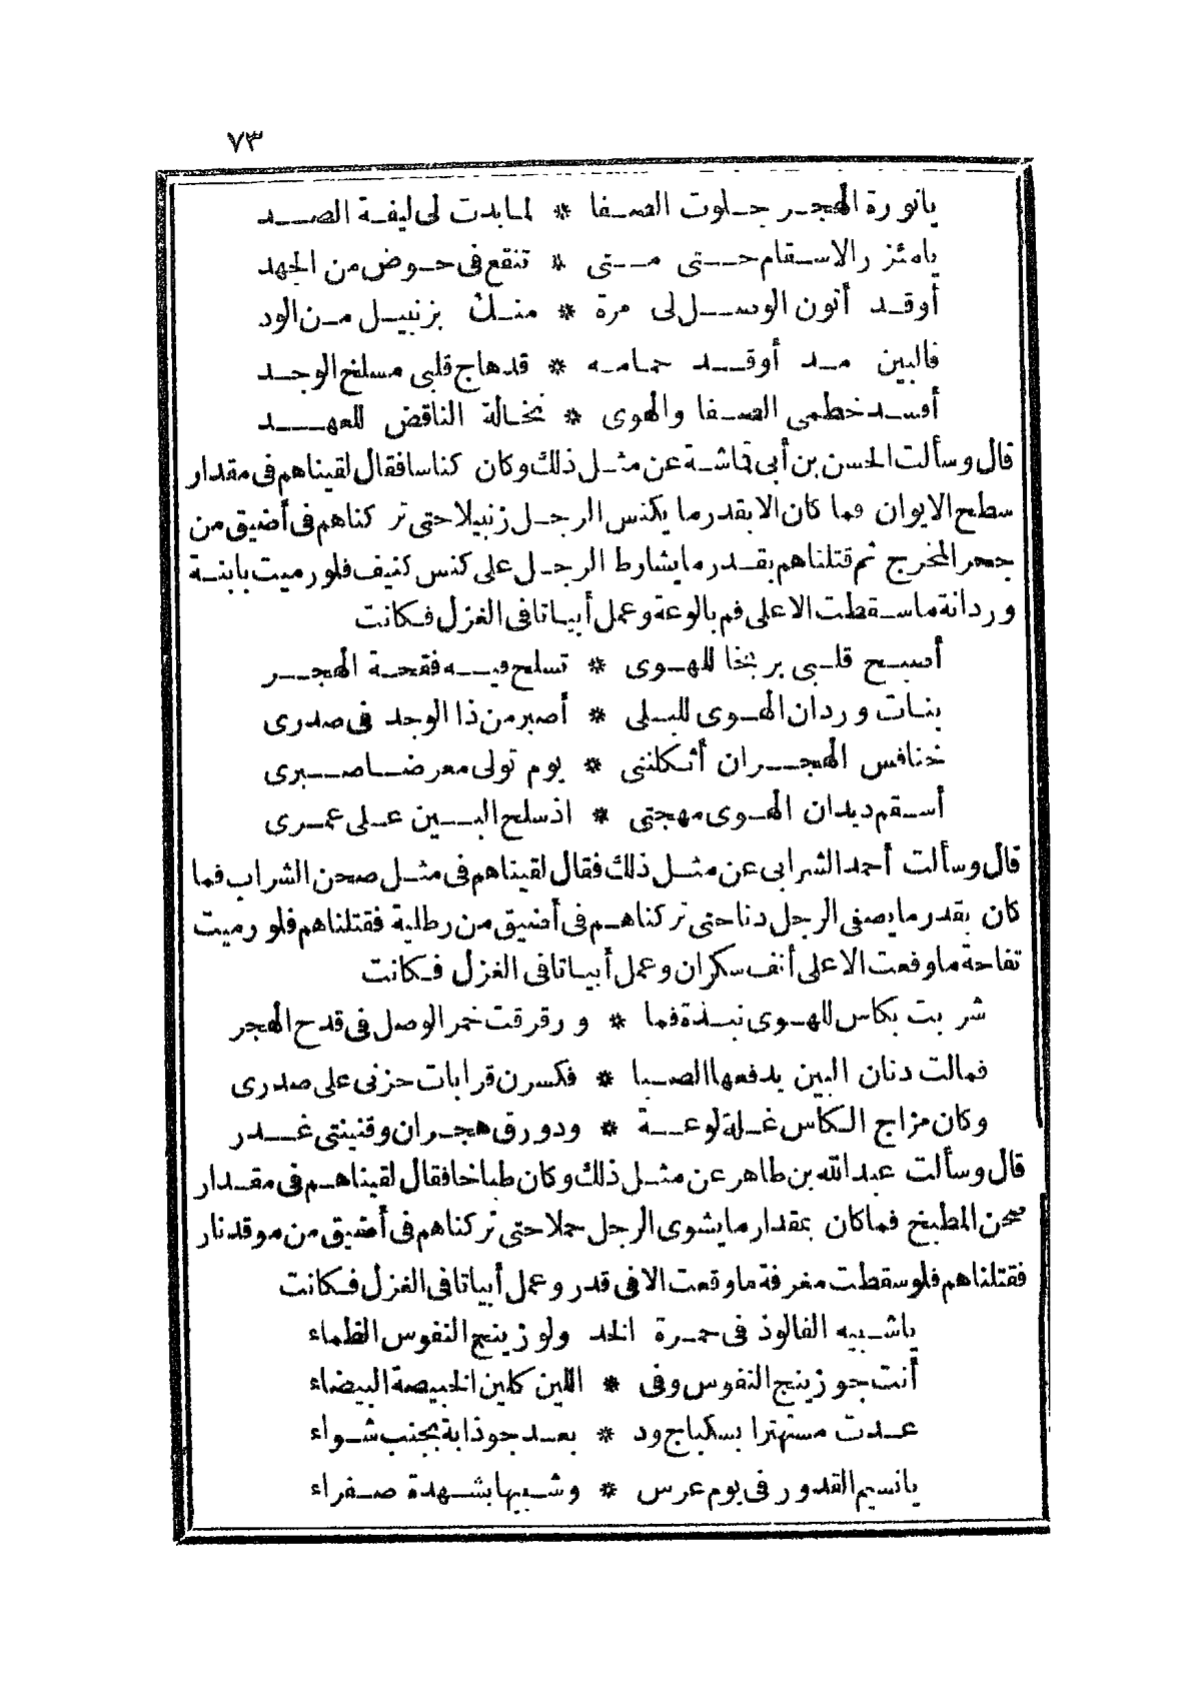 ٧٣
يانورة الهجر جلوت الصفا * لمابدت لى ليفة الصد
يامئزر الاسقام حتى متى * تنقع فى حوض من الجهد
أوقد أتون الوصل لى مرة * منك بزنبيل من الود
فالبين مد أوقد حمامه * قدهاج قلبى مسلخ الوجد
أفسد خطمى الصفا والهوى * نخالة الناقض للعهد
قال وسألت الحسن بن أبى قماشة عن مثل ذلك وكان كناسا فقال لقيناهم فى مقدار
سطح الايوان فما كان الا بقدر ما يكنس الرجل زنبيلا حتى تركناهم فى أضيق من
جحر المخرج ثم قتلناهم بقدر ما يشارط الرجل على كنس كنيف فلو رميت بابنة
وردانة ماسقطت الا على فم بالوعة وعمل أبياتا فى الغزل فكانت
أصبح قلبى بربخا للهوى * تسلح فيه فقحة الهجر
بنات وردان الهوى للبلى * أصبر من ذا الوجد فى صدرى
خنافس الهجران أثكلننى * يوم تولى معرضا صبرى
أسقم ديدان الهوى مهجتى * اذ سلح البين على عمرى
قال وسألت أحمد الشرابى عن مثل ذلك فقال لقيناهم فى مثل صحن الشراب فما
كان بقدر ما يصفى الرجل دنا حتى تركناهم فى أضيق من رطلية فقتلناهم فلو رميت
تفاحة ما وقعت الا على أنف سكران وعمل أبياتا فى الغزل فكانت
شربت بكاس للهوى نبذة فما * ورقرقت خمر الوصل فى قدح الهجر
فمالت دنان البين يدفعها الصبا * فكسرن قرابات حزنى على صدرى
وكان مزاج الكاس غلة لوعة * ودورق هجران وقنينتى غدر
قال وسألت عبد الله بن طاهر عن مثل ذلك وكان طباخا فقال لقيناهم فى مقدار
صحن المطبخ فما كان بمقدار ما يشوى الرجل حملا حتى تركناهم فى أضيق من موقد نار
فقتلناهم فلو سقطت مغرفة ما وقعت الا فى قدر وعمل أبياتا فى الغزل فكانت
ياشبيه الفالوذ فى حمرة الخد ولوزينج النفوس الظماء
أنت جوزينج النفوس وفى * اللين كلين الخبيصة البيضاء
عدت مستهترا بسكباج ود * بعد جوذابة بجنب شواء
يانسيم القدور فى يوم عرس * وشبيها بشهدة صفراء